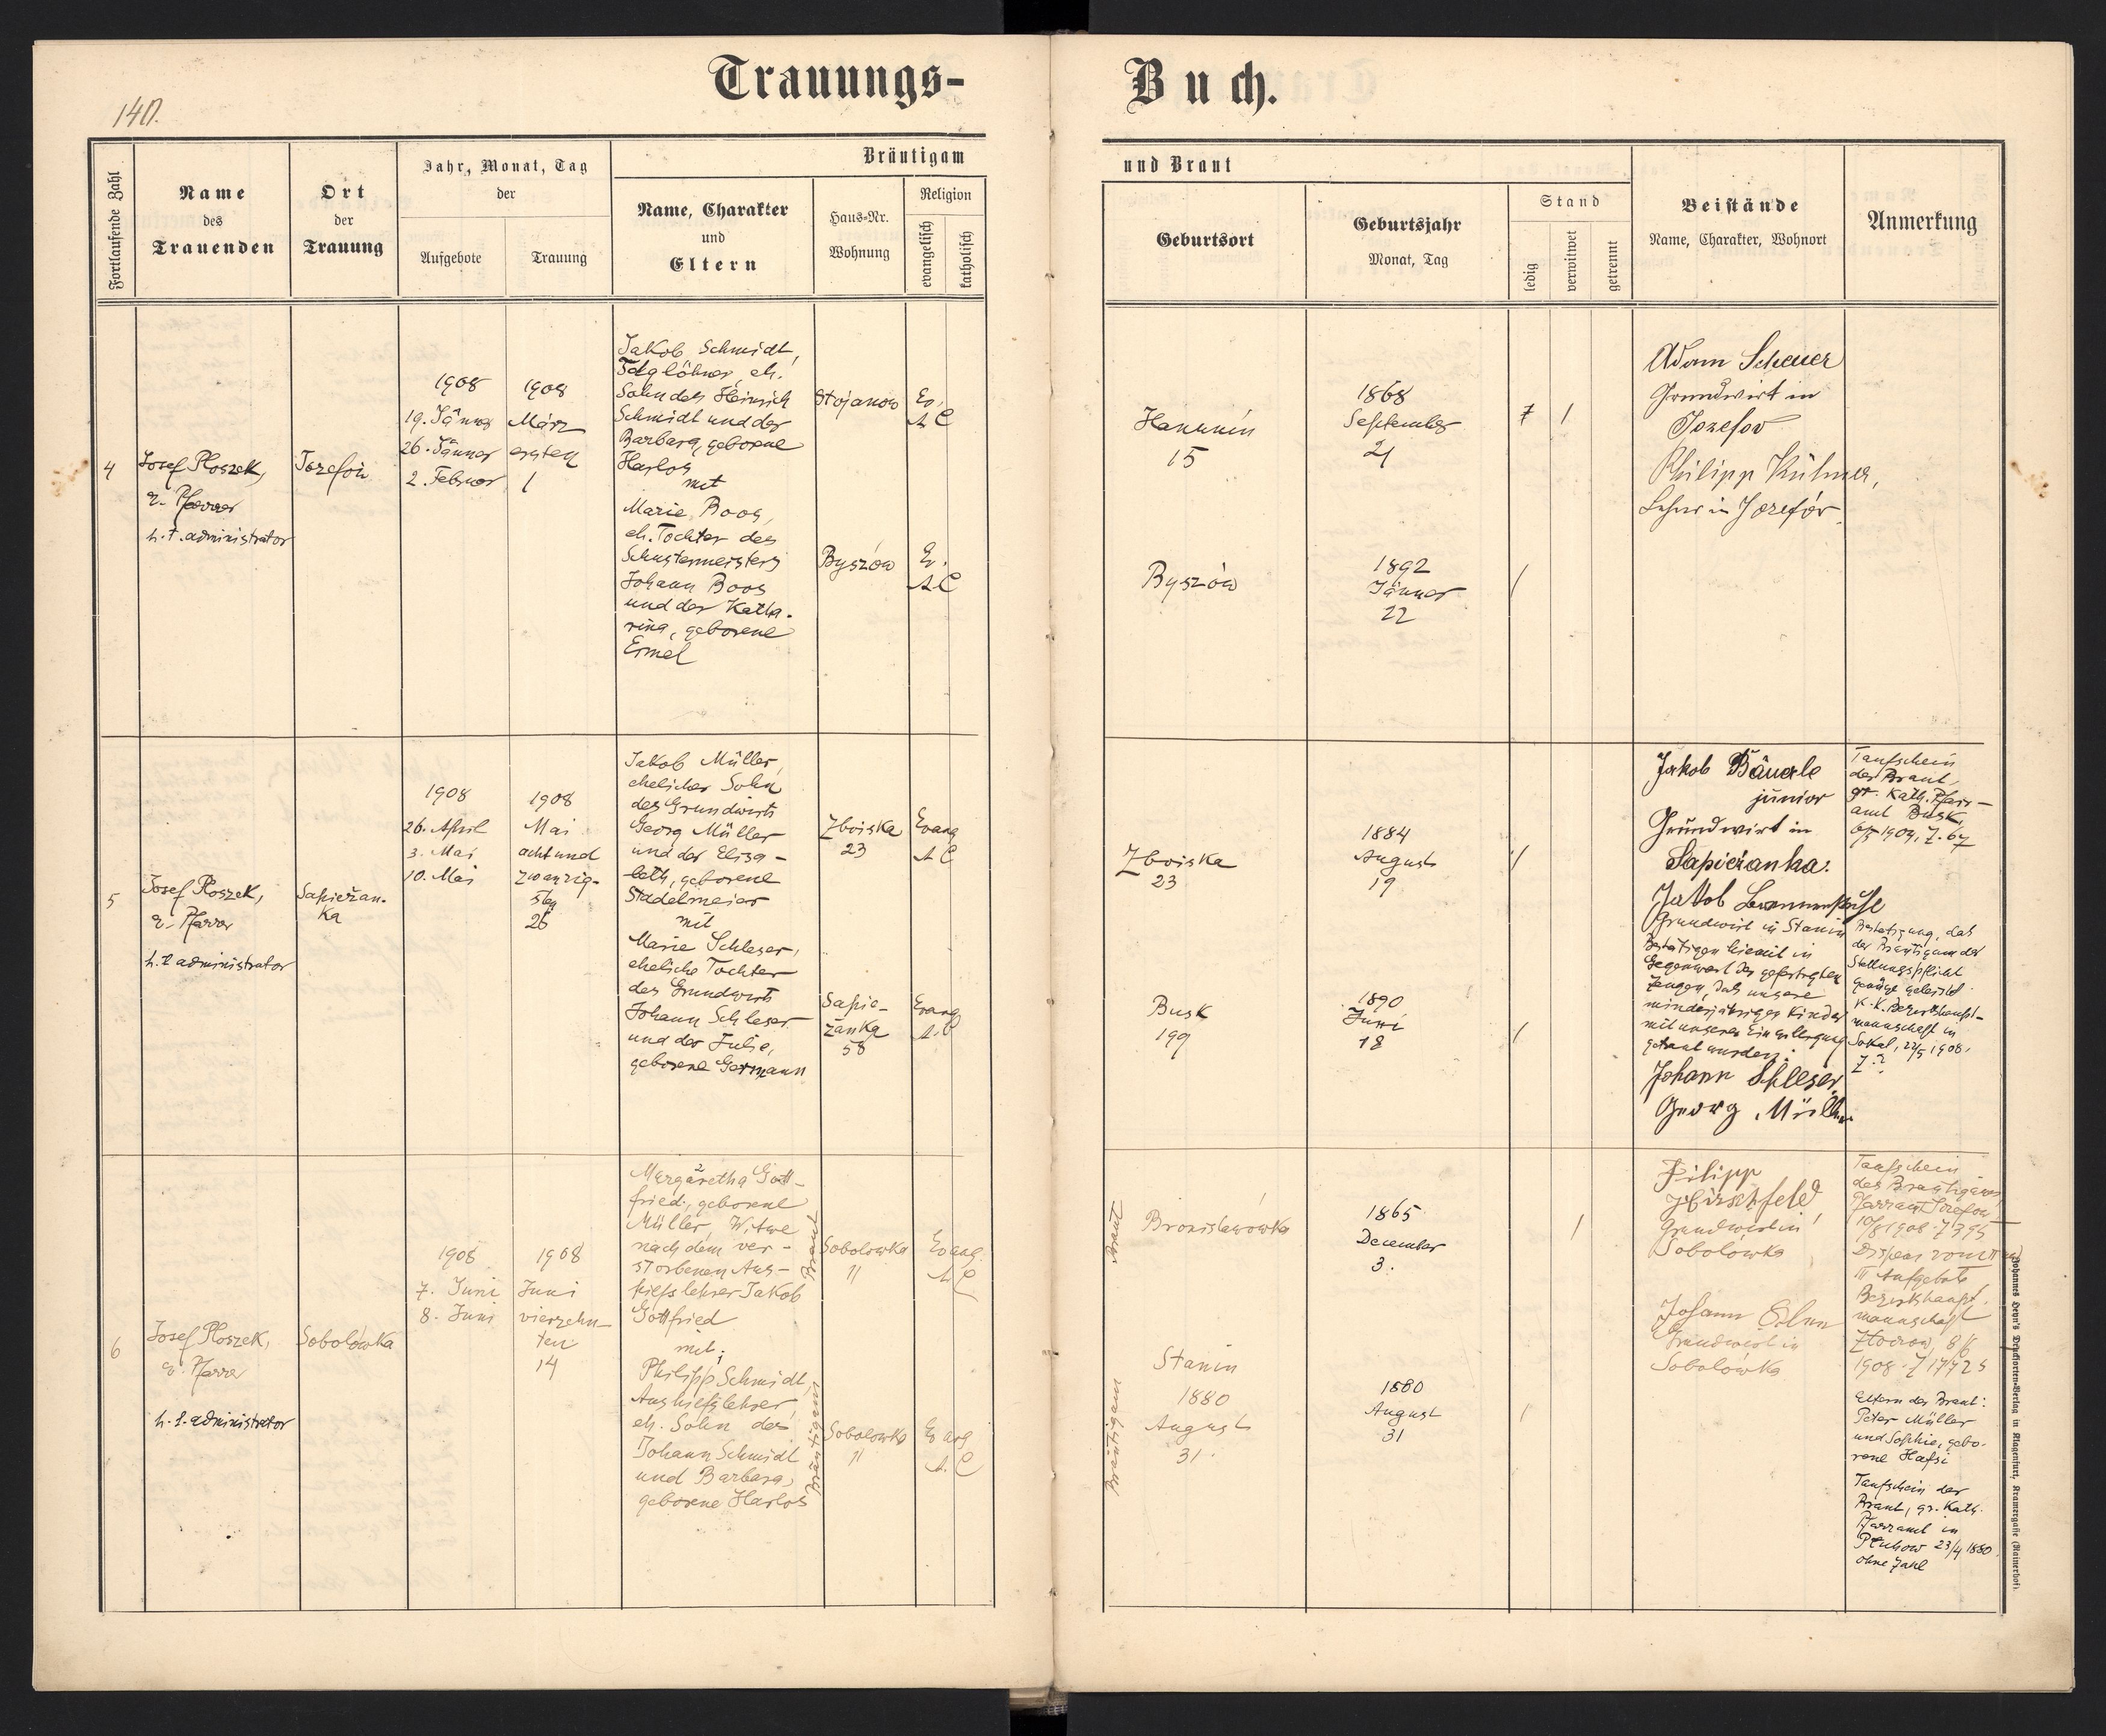 Trauungs-
Buch.
140.
Fortlaufende Zahl
Name
des
Trauenden
Ort
der
Trauung
Jahr, Monat, Tag
der
Aufgebote
Trauung
Bräutigam
Name, Charakter
und
Eltern
Haus-Nr.
Wohnung
Religion
evangelisch
katholisch
und Braut
Geburtsort
Geburtsjahr
Monat, Tag
Stand
ledig
verwitwet
getrennt
Beistände
Name, Charakter, Wohnort
Anmerkung
4
Josef Ploszek,
ev. Pfarrer
h. t. administrator
Jozefów
1908
19. Jänner
26. Jänner
2. Februar
1908
März
ersten
1
Jakob Schmidt,
Taglöhner, eh.
Sohn des Heinrich
Schmidt und der
Barbara, geborene
Harlos
mit
Marie Boos,
eh. Tochter des
Schustermeisters
Johann Boos
und der Katha-
rina, geborene
Ermel
Stojanow
Ev.
A C
Byszów
Ev.
A C
Hanunin
15
1868
September
21
1
Byszów
1892
Jänner
22
/
Adam Scheuer
Grundwirt in
Jozefov
Philipp Kühner,
Lehrer in Jozefór
5
Josef Ploszek,
ev. Pfarrer
h. t. administrator
Sapieżan-
ka
1908
26. April
3. Mai
10. Mai
1908
Mai
acht und
zwanzig-
sten
28
Jakob Müller,
ehelicher Sohn
des Grundwirts
Georg Müller
und der Elisa-
beth, geborene
Stadelmeier
mit
Marie Schleser,
eheliche Tochter
des Grundwirts
Johann Schleser
und der Julie,
geborene Germann
Zboiska
23
Evang
A C
Sapie-
żanka
58
Evang
A. C
Zboiska
23
1884
August
19
/
Busk
199
1890
Juni
18
/
Jakob Bäuerle
junior
Grundwirt in
Sapieżanka.
Jakob
Grundwirt in Stanin
Bestätigen hiemit in
Gegenwart der gefertigten
Zeugen, daß unsere
minderjährigen Kinder
mit unserer Einwilligung
getraut wurden:
Johann Schleser
Georg Müller
Taufschein
der Braut,
gr. kath. Pfarr-
amt Busk,
1909, Z. 67
Bestätigung, daß
der Bräutigam der
Stellungspflicht
genüge geleistet
K. K. Bezirkshaupt-
mannschaft in
Sokal, 22/5 1908.
Z. ?
6
Josef Ploszek,
ev. Pfarrer
h. t. administrator
Sobolówka
1908
7. Juni
8. Juni
1908
Juni
vierzehn-
ten
14
Margaretha Gott-
fried, geborene
Müller, Witwe
nach dem ver-
storbenen Aus-
hilfslehrer Jakob
Gottfried
mit
Philipp Schmidt,
Aushilfslehrer,
eh. Sohn des
Johann Schmidt
und Barbara,
geborene Harlos
Braut
Bräutigam
Sobolowka
11
Evang.
A. C
Sobolowka
11
Evang
A. C
Braut
Bronislawówka
1865
December
3.
/
Bräutigam
Stanin
1880
August
31.
1880
August
31
/
Filipp
Hirschfeld,
Grundwirt in
Sobolówka
Johann
Grundwirt in
Sobolówka
Taufschein
des Bräutigams
Pfarramt Jozefow
1908 Z 395
Dispens vom II und
III Aufgebote
Bezirkshaupt-
mannschaft
Złoczow, 8/6
1908. Z 17725
Eltern der Braut:
Peter Müller
und Sophie, gebo-
rene Hafsi
Taufschein der
Braut, gr. kath.
Pfarramt in
Pluhow 23/4 1880
ohne Zahl
Johannes Heyn's Drucksorten-Verlag in Klagenfurt, Kramergasse (Rainerhof).